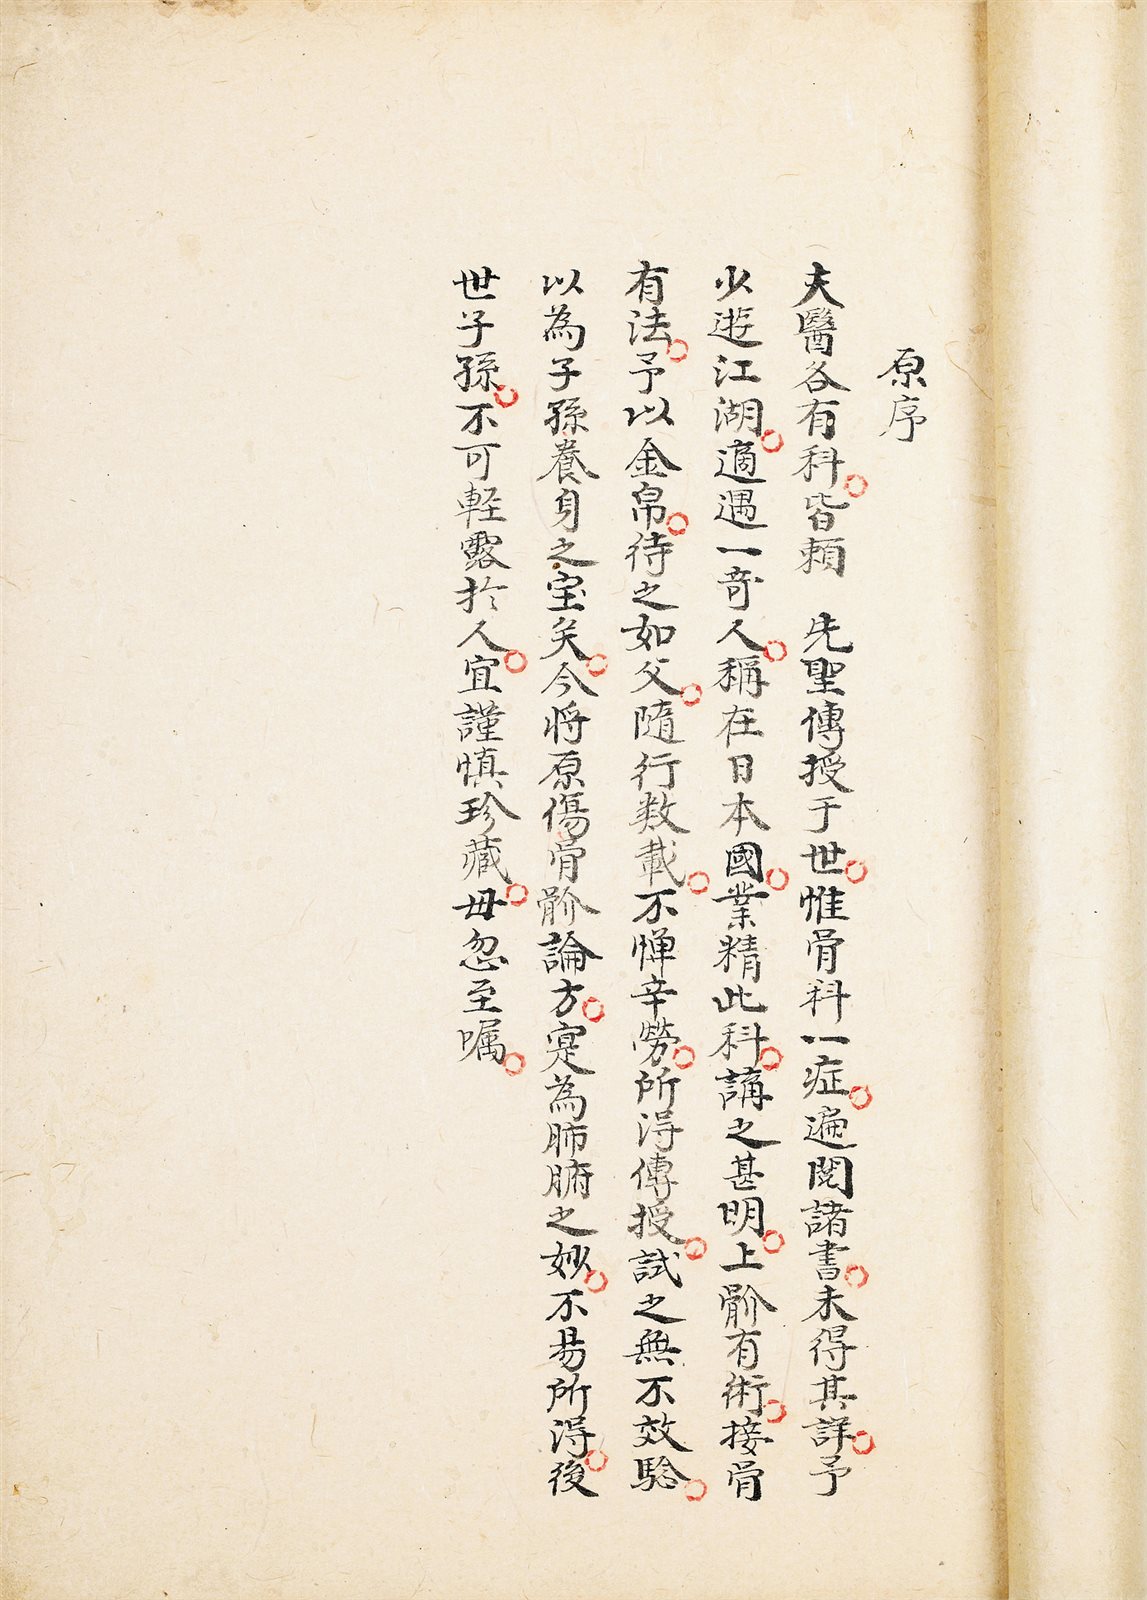 原序
夫醫各有科。皆賴　先聖傳授于世。惟骨科一症。遍閱諸書。未得其詳。予
少遊江湖。適遇一奇人。稱在日本國。業精此科。講之甚明。上骱有術。接骨
有法。予以金帛。待之如父。隨行数載。不惮辛勞。所淂傳授。試之無不效騐。
以為子孫養身之宝矣。今將原傷骨骱論方。寔為肺腑之妙。不易所淂。後
世子孫。不可軽露於人。宜謹慎珍藏。毋忽至嘱。